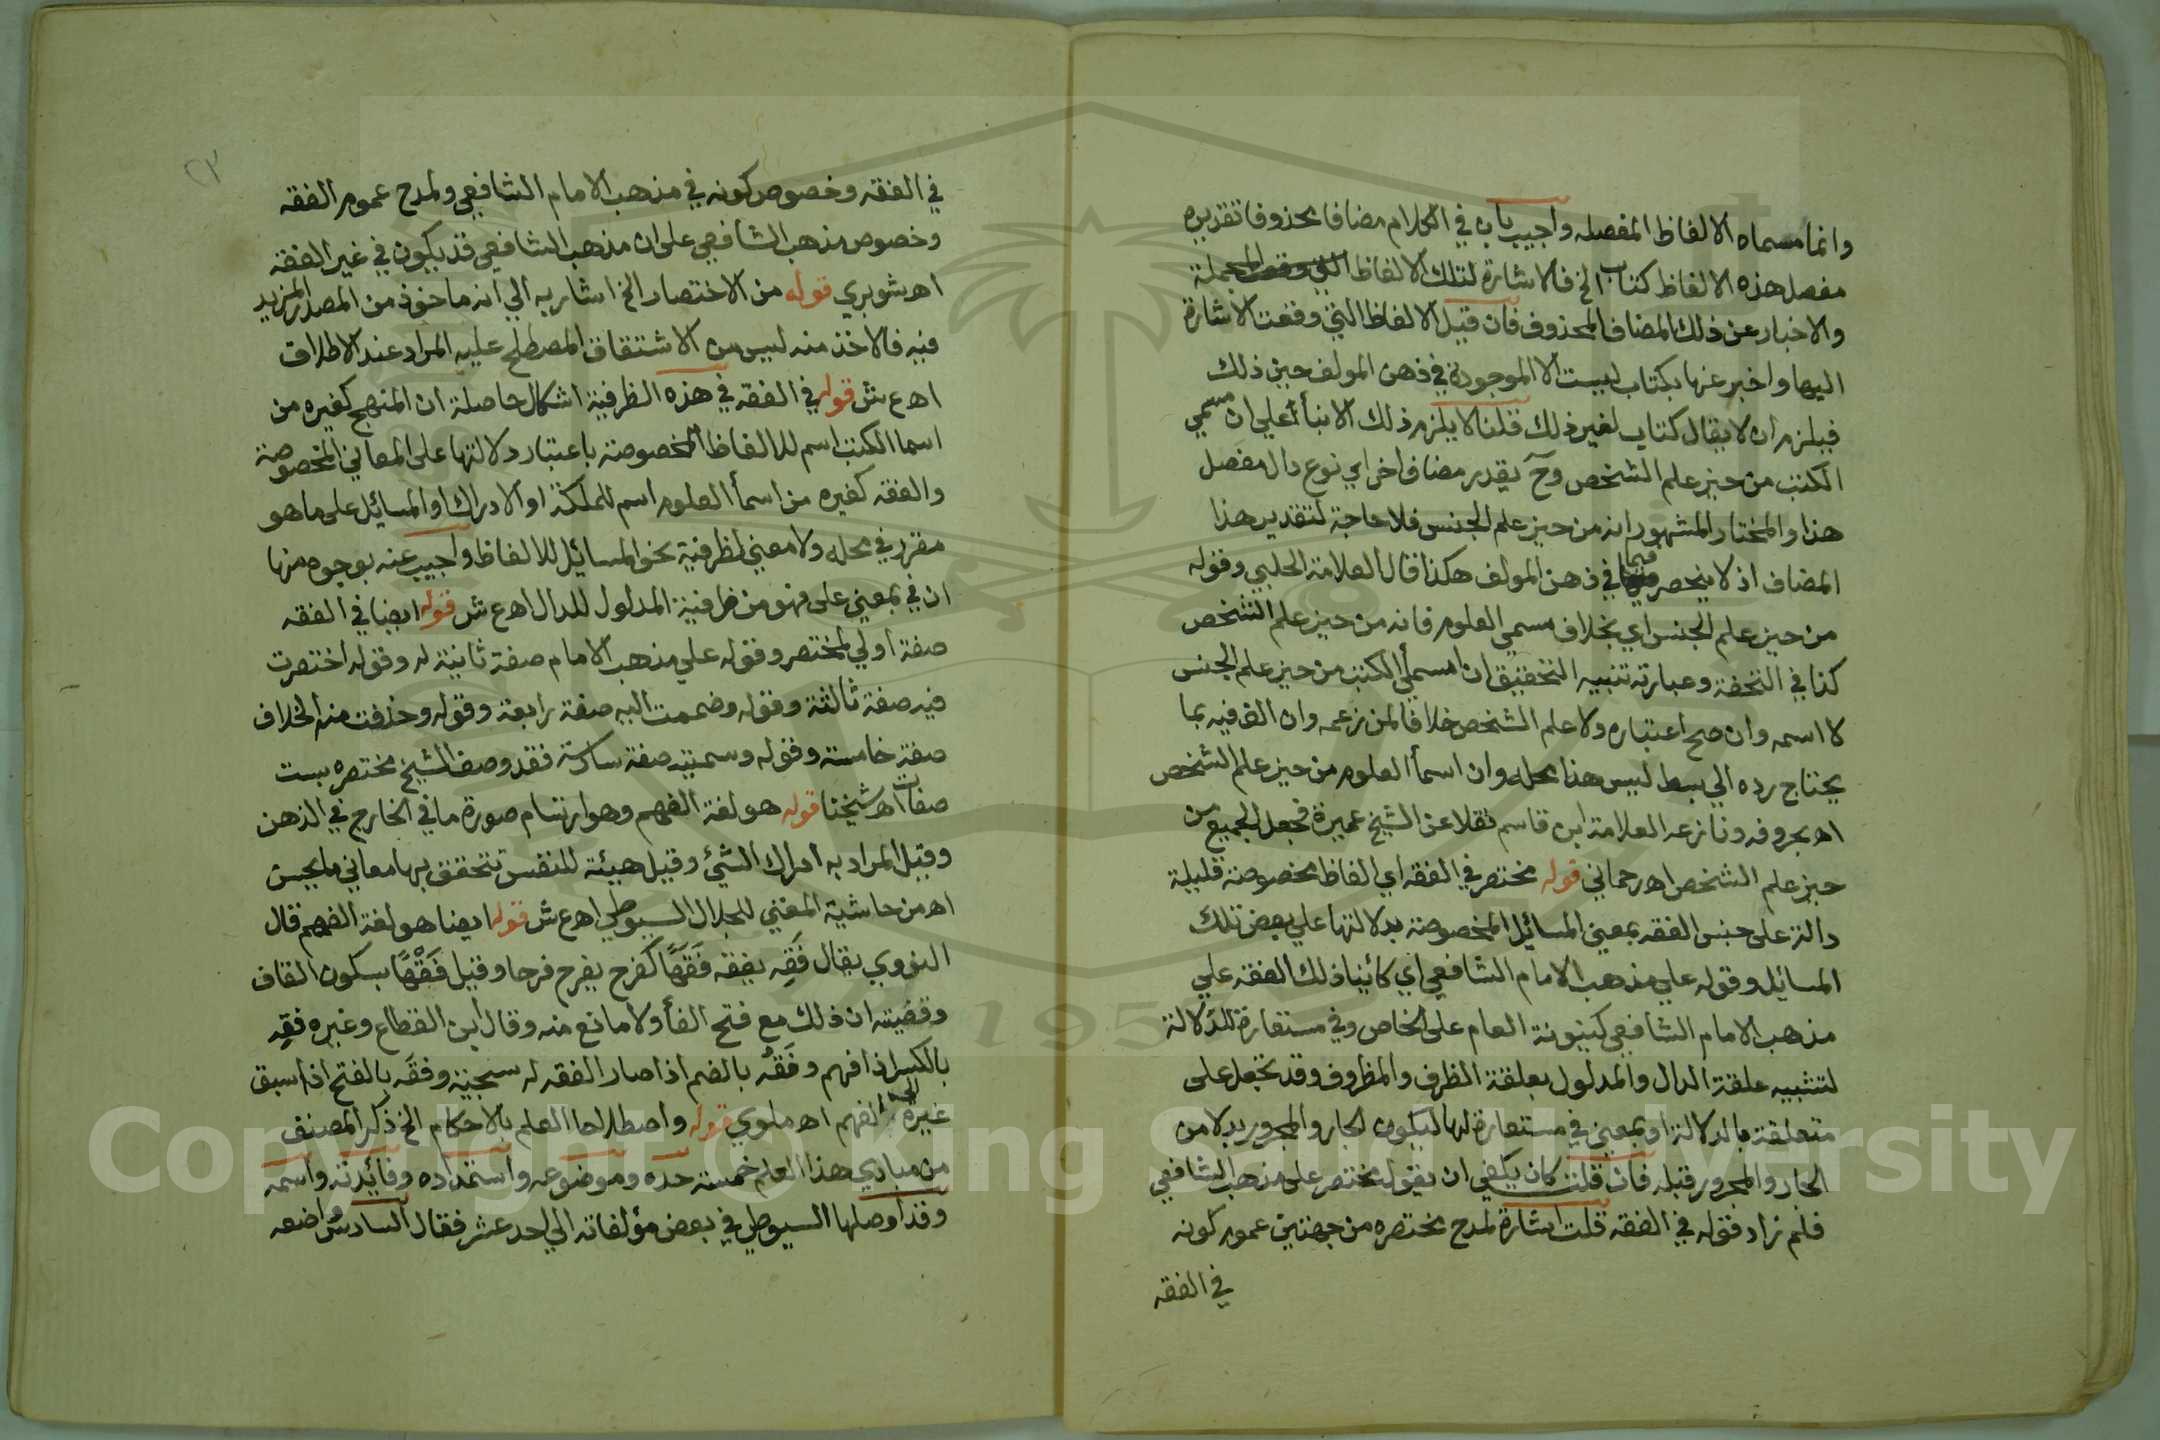 وانما مسماه الالفاظ المفصله واجيب بان في الكلام مضافا محذوفا تقديره
مفصل هذه الالفاظ كتاب الخ فالاشارة لتلك الالفاظ المجملة
والاخبار عن ذلك المضاف المحذوف فان قيل الالفاظ التي وقعت الاشارة
اليها واخبر عنها بكتاب ليست الا الموجودة في ذهن المولف حين ذلك
فيلزم ان لا يقال كتاب لغير ذلك قلنا لا يلزم ذلك الا بناأ علي ان مسمي
الكتب من حيز علم الشخص وح يقدر مضاف اخر اي نوع دال مفصل
هذا والمختار المشهور انه من حيز علم الجنس فلا حاجة لتقدير هذا
المضاف اذ لا ينحصر فيما في ذهن المولف هكذا قال العلامة الحلبي وقوله
من حيز علم الجنس اي بخلاف مسمي العلوم فانه من حيز علم الشخص
كذا في التحفة وعبارته تنبيه التحقيق ان مسمي الكتب من حيز علم الجنس
لا اسمه وان صح اعتباره ولا علم الشخص خلافا لمن زعمه وان الف فيه بما
يحتاج رده الي بسط ليس هذا محله وان اسمأ العلوم من حيز علم الشخص
اه بحروفه ونازعه العلامة ابن قاسم نقلا عن الشيخ عميرة فجعل الجميع من
حيز علم الشخص اه رحماني قوله مختصر في الفقه اي الفاظ مخصوصة قليلة
دالة على جنس الفقه بمعني المسائل المخصوصة بدلالتها علي بعض تلك
المسائل وقوله علي مذهب الامام الشافعي اي كائنا ذلك الفقه علي
مذهب الامام الشافعي كينونة العام على الخاص وفي مستعارة للدلالة
لتشبيه علقة الدال والمدلول بعلقة الظرف والمظروف وقد تجعل على
متعلقة بالدلالة او بمعني في مستعارة لها ليكون الجار والمجرور بدلا من
الجار والمجرور قبله فان قلت كان يكفي ان يقول مختصر على مذهب الشافعي
فلم زاد قوله في الفقه قلت اشارة لمدح مختصره من جهتين عموم كونه
في الفقه
٢٣
في الفقه وخصوص كونه في مذهب الامام الشافعي ولمدح عموم الفقه
وخصوص مذهب الشافعي على ان مذهب الشافعي قد يكون في غير الفقه
اه شوبري قوله من الاختصار الخ اشار به الي انه ماخوذ من المصدر المزيد
فيه فالاخذ منه ليس من الاشتقاق المصطلح عليه المراد عند الاطلاق
اه ع ش قوله في الفقه في هذه الظرفية اشكال حاصلة ان المنهج كغيره من
اسما الكتب اسم للالفاظ المخصوصة باعتبار دلالتها على المعاني المخصوصة
والفقه كغيره من اسمأ العلوم اسم للملكة او الادراك او المسائل على ما هو
مقرر في محله ولا معني لظرفية نحو المسائل للالفاظ واجيب عنه بوجوه منها
ان في بمعني على فهو من ظرفية المدلول للدال اه ع ش قوله ايضا في الفقه
صفة اولي لمختصر وقوله علي مذهب الامام صفة ثانية له وقوله اختصرت
فيه صفة ثالثة وقوله وضممت اليه صفة رابعة وقوله وحذفت منه الخلاف
صفة خامسة وقوله وسميته صفة سادسة فقد وصف الشيخ مختصره بست
صفات اه شيخنا قوله هو لغة الفهم وهو ارتسام صورة ما في الخارج في الذهن
وقيل المراد به ادراك الشيئ وقيل هيئة للنفس تتحقق بها معاني ما يحس
اه من حاشية المغني للجلال السيوطي اه ع ش قوله ايضا هو لغة الفهم قال
النووي يقال فَقِه يفقه فَقَهًا كفرح يفرح فرحا وقيل فَقْهًا بسكون القاف
وقضيته ان ذلك مع فتح الفأ ولا مانع منه وقال ابن القطاع وغيره فقِه
بالكسر اذا فهم وفَقُه بالضم اذا صار الفقه له سجية وفقَه بالفتح اذا سبق
غيره الى الفهم اه ملوي قوله واصطلاحا العلم بالاحكام الخ ذكر المصنف
من مبادي هذا العلم خمسة حده وموضوعه واستمداده وفائدته واسمه
وقد اوصلها السيوطي في بعض مؤلفاته الي احد عشر فقال السادس واضعه
Copyright © King Saud University
1957